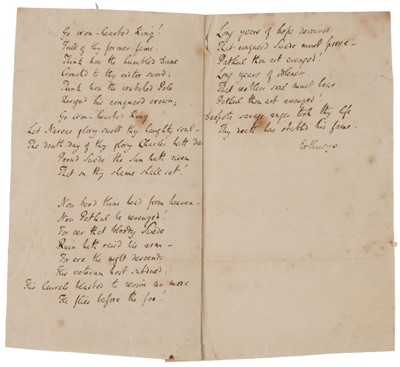 Go iron-hearted King!
Full of thy former fame.
Think how the humbled Dane
Crouch'd to thy victor sword;
Think how the wretched Pole
Resign'd his conquered crown;
Go iron-hearted King
Let Narvas glory swell thy haughty soul—
The death-day of thy glory Charles hath dawn
Proud Swede the Sun hath risen
That on thy shame shall set!
Now bend thine head from heaven—
Now Patkul be revenged!
For over that bloody Swede
Ruin hath rais'd his arm—
For ere the night descends
His veteran host subdued,
His laurels blasted to revive no more
He flies before the foe!
Long years of hope deceived
That conquered Swede must prove—
Patkul thou art avenged!
Long years of idleness
That restless soul must bear
Patkul thou art avenged!
Despots savage anger took thy life
Thy death has stabbed his fame.
Erthusyo.